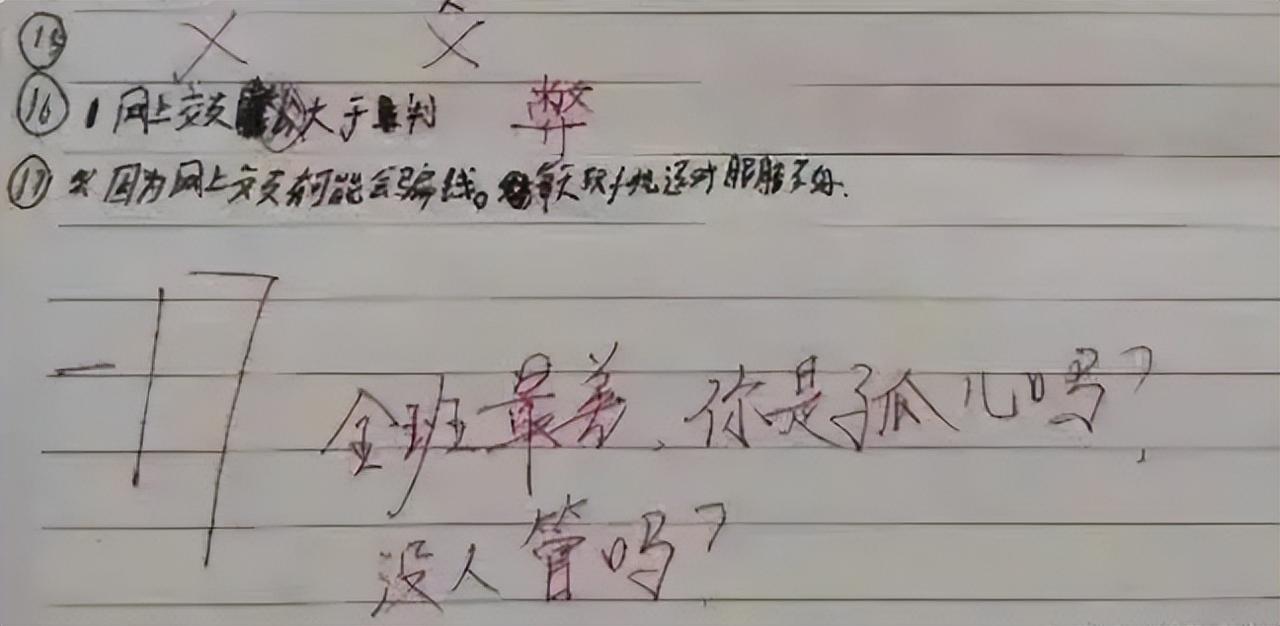 ⑮
⑯ 1 网上交友大于判 弊
⑰ 因为网上交友有可能会骗钱。天玩手机还对眼睛不好.
-17
全班最差、你是孤儿吗?
没人管吗?